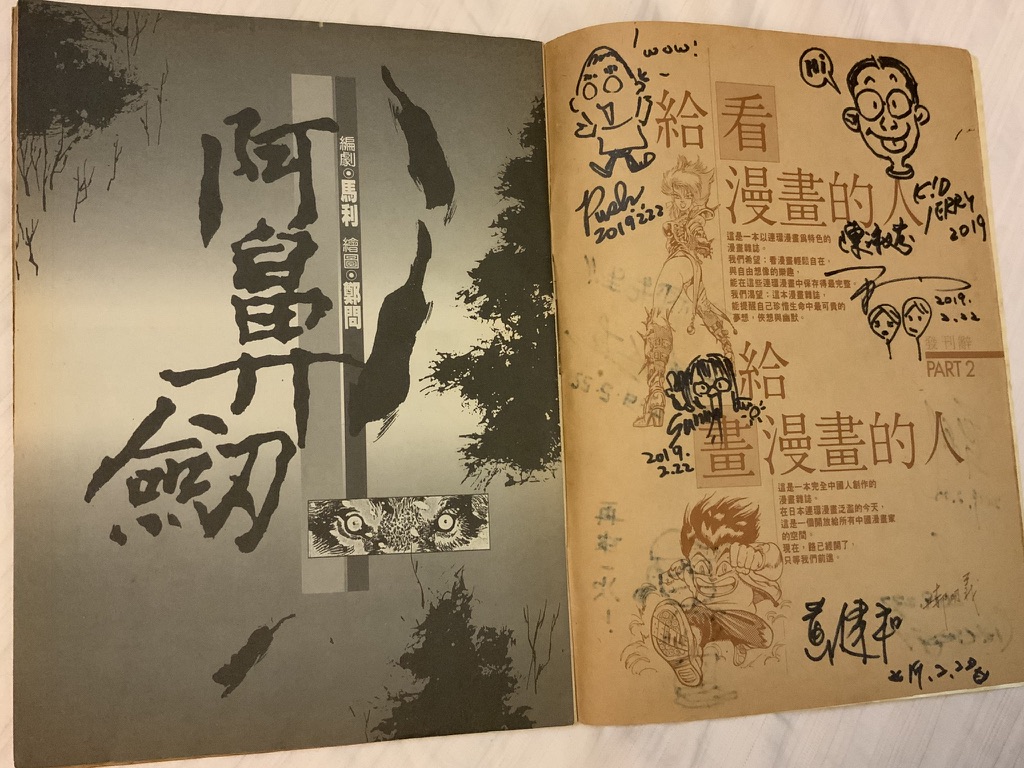 阿鼻劍
編劇•馬利 繪圖•鄭問
wow!
Hi
給看
漫畫的人
Push
2019.2.22
KID
JERRY
2019
這是一本以連環漫畫為特色的
漫畫雜誌。
我們希望：看漫畫輕鬆自在，
與自由想像的樂趣，
能在這些連環漫畫中保存得最完整。
我們渴望：這本漫畫雜誌，
能提醒自己珍惜生命中最可貴的
夢想，俠想與幽默。
2019.
2.22
發刊辭
PART 2
給
畫漫畫的人
2019.
2.22
這是一本完全中國人創作的
漫畫雜誌。
在日本連環漫畫泛濫的今天，
這是一個開放給所有中國漫畫家
的空間。
現在，路已經開了，
只等我們前進。
黃健和